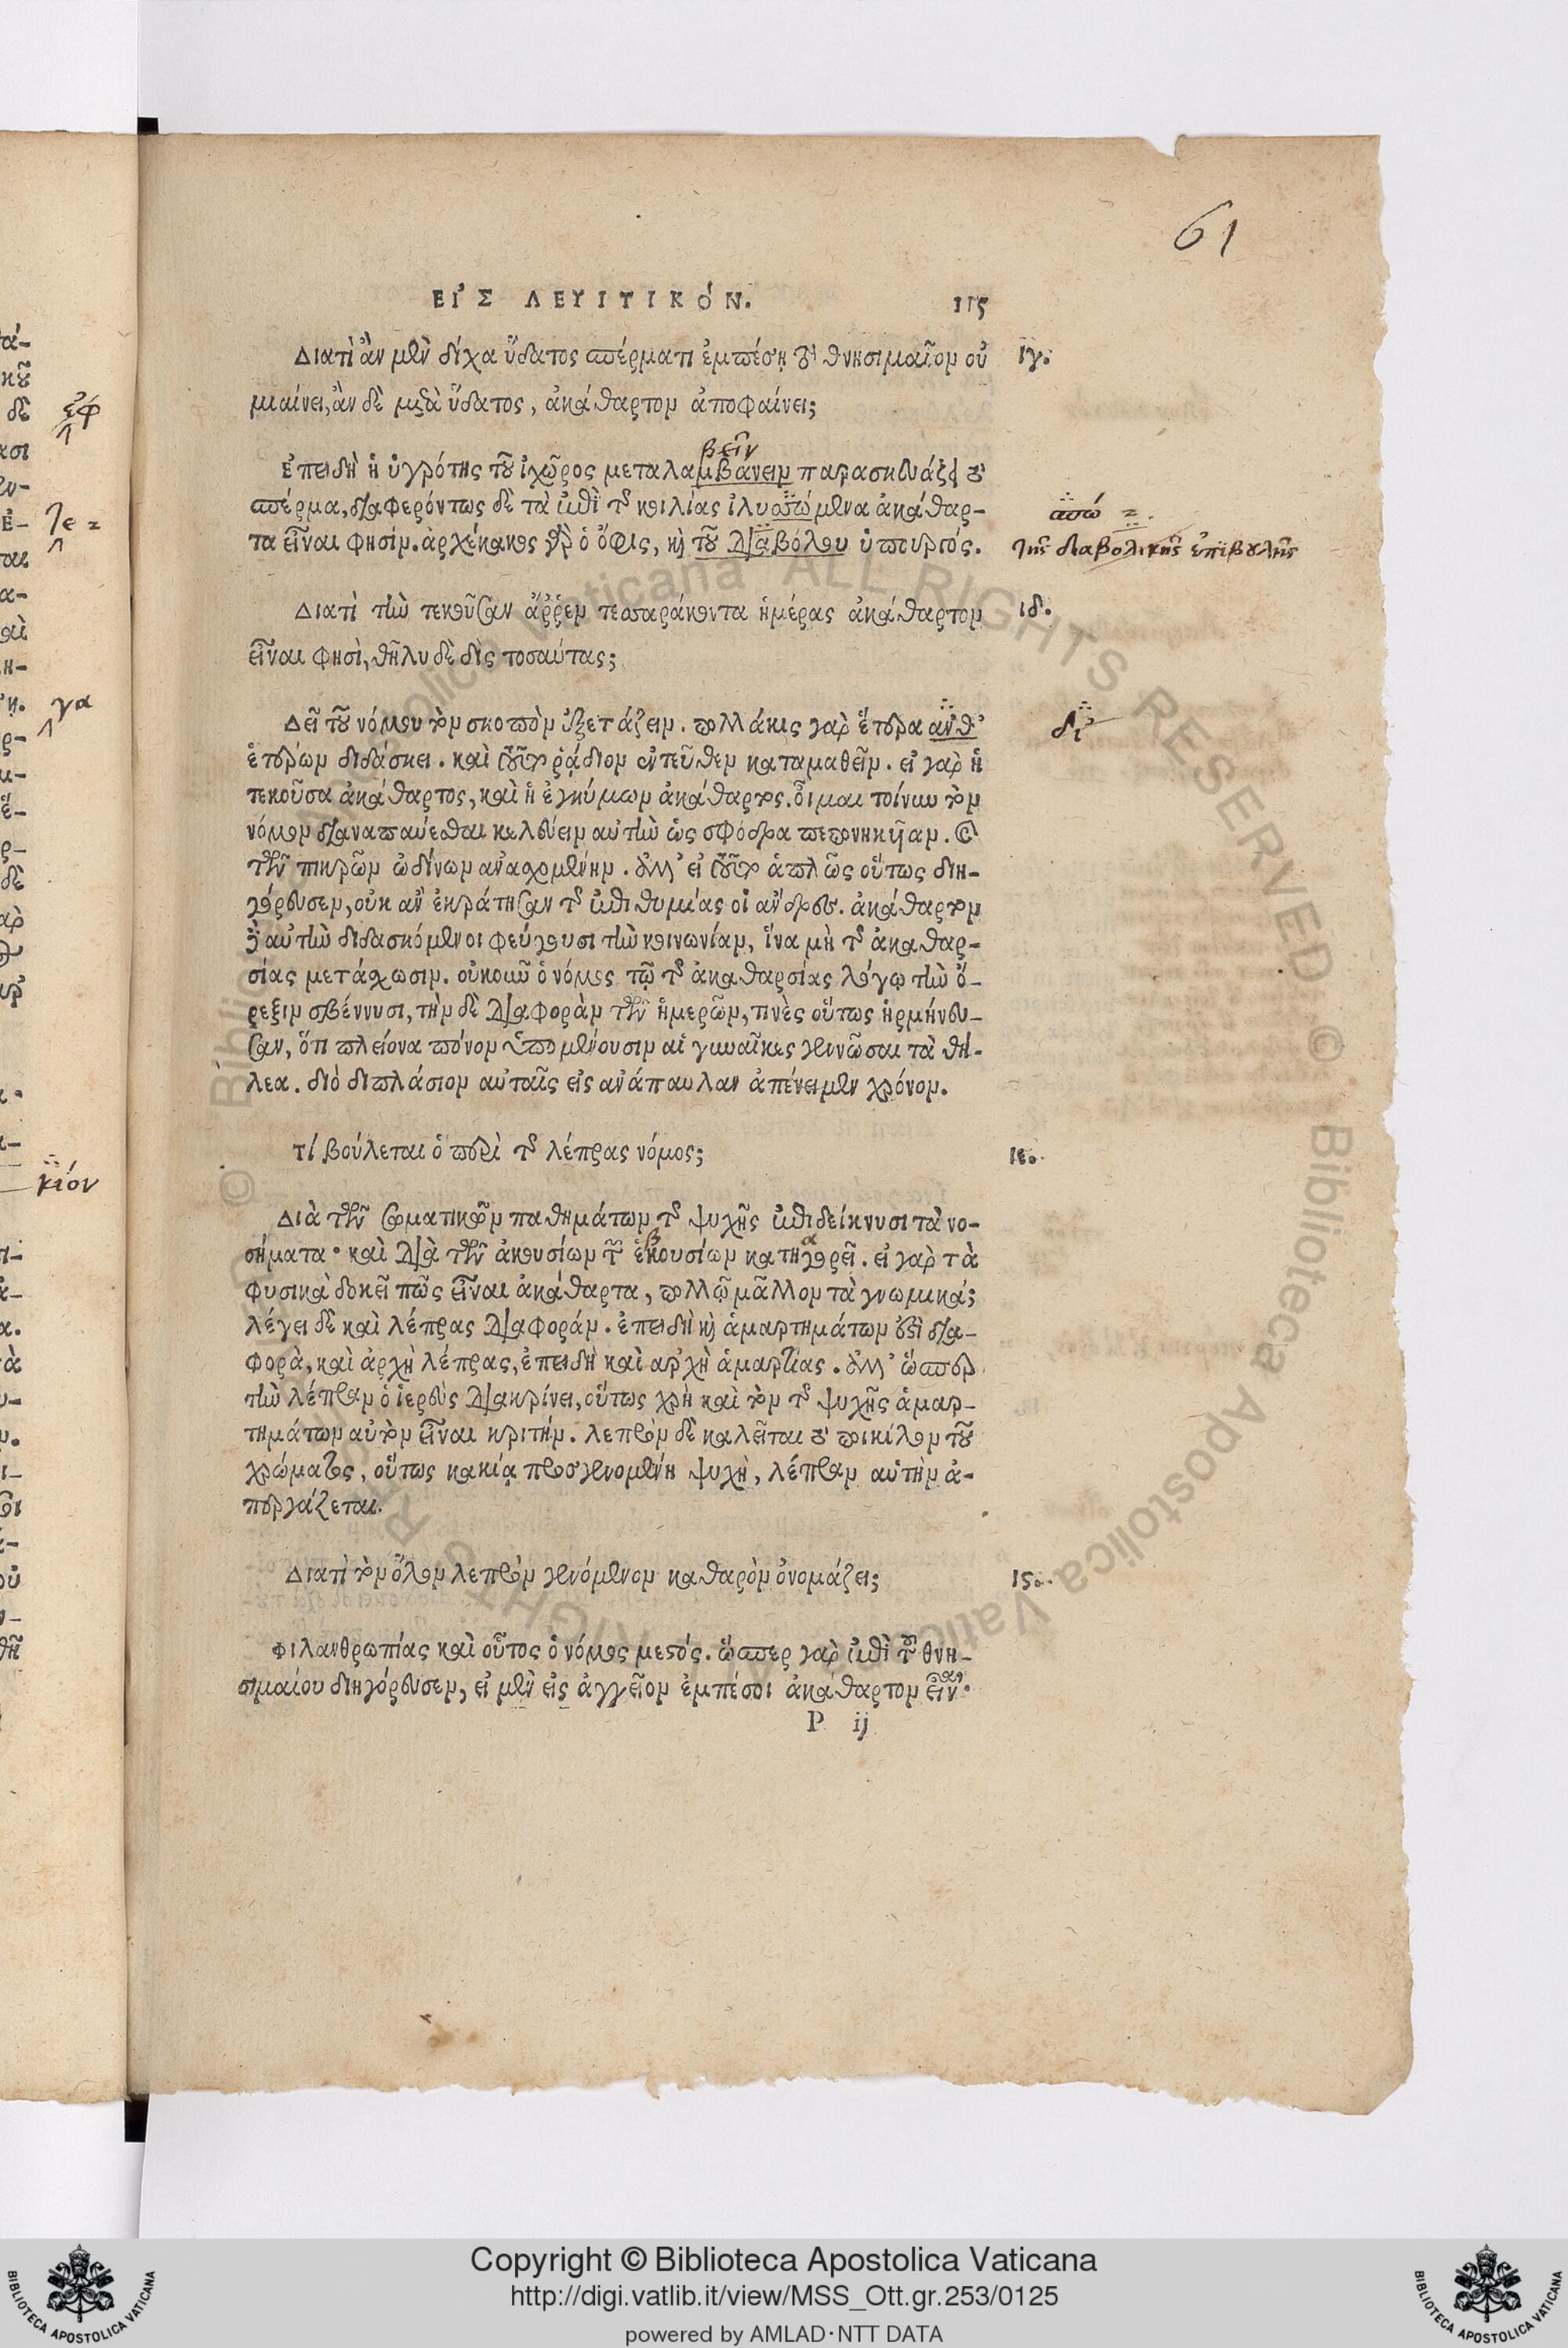 61
ΕἸΣ ΛΕΥΙΤΙΚΌΝ. 115
Διατὶ ἂν μὲν δίχα ὕδατος σπέρματι ἐμπέσῃ τὶ θνησιμαῖον οὐ ιγ.
μιαίνει, ἂν δὲ μετὰ ὕδατος, ἀκάθαρτον ἀποφαίνει;
βεῖν
Ἐπειδὴ ἡ ὑγρότης τοῦ ἰχῶρος μεταλαμβάνειν παρασκευάζει τὸ
σπέρμα, διαφερόντως δὲ τὰ ἐπὶ τῆς κοιλίας ἰλυσπώμενα ἀκάθαρ- σπώ
τα εἶναι φησίν. ἀρχέκακος γὰρ ὁ ὄφις, καὶ τοῦ διαβόλου ὑπουργός. τῆς διαβολικῆς ἐπιβουλῆς
Διατὶ τὴν τεκοῦσαν ἄῤῥεν τεσσαράκοντα ἡμέρας ἀκάθαρτον ιδ.
εἶναι φησὶ, θῆλυ δὲ δὶς τοσαύτας;
Δεῖ τοῦ νόμου τὸν σκοπὸν ἐξετάζειν. πολλάκις γὰρ ἕτερα ἀνθ’ δι’
ἑτέρων διδάσκει. καὶ τοῦτο ῥᾴδιον ἐντεῦθεν καταμαθεῖν. εἰ γὰρ ἡ
τεκοῦσα ἀκάθαρτος, καὶ ἡ ἐγκύμων ἀκάθαρτος. οἶμαι τοίνυν τὸν
νόμον διαναπαύεσθαι κελεύειν αὐτὴν ὡς σφόδρα πεπονηκῖαν. καὶ
τῶν πικρῶν ὠδίνων ἀνασχομένην. ἀλλ’ εἰ τοῦτο ἁπλῶς οὕτως διη-
γόρευσεν, οὐκ ἂν ἐκράτησαν τῆς ἐπιθυμίας οἱ ἄνδρες. ἀκάθαρτον
δὲ αὐτὴν διδασκόμενοι φεύγουσι τὴν κοινωνίαν, ἵνα μὴ τῆς ἀκαθαρ-
σίας μετάσχωσιν. οὐκοῦν ὁ νόμος τῷ τῆς ἀκαθαρσίας λόγῳ τὴν ὄ-
ρεξιν σβέννυσι, τὴν δὲ διαφορὰν τῶν ἡμερῶν, τινὲς οὕτως ἡρμήνευ-
σαν, ὅτι πλείονα πόνον ὑπομένουσιν αἱ γυναῖκες γεννῶσαι τὰ θή-
λεα. διὸ διπλάσιον αὐταῖς εἰς ἀνάπαυλαν ἀπένειμεν χρόνον.
τί βούλεται ὁ περὶ τῆς λέπρας νόμος; ιε.
Διὰ τῶν σωματικῶν παθημάτων τῆς ψυχῆς ἐπιδείκνυσι τὰ νο-
σήματα· καὶ διὰ τῶν ἀκουσίων τῶν ἑκουσίων κατηγορεῖ. εἰ γὰρ τὰ
φυσικὰ δοκεῖ πῶς εἶναι ἀκάθαρτα, πολλῷ μᾶλλον τὰ γνωμικά;
λέγει δὲ καὶ λέπρας διαφοράν. ἐπειδὴ καὶ ἁμαρτημάτων ἐστὶ δια-
φορὰ, καὶ ἀρχὴ λέπρας, ἐπειδὴ καὶ ἀρχὴ ἁμαρτίας. ἀλλ’ ὥσπερ
τὴν λέπραν ὁ ἱερεὺς διακρίνει, οὕτως χρὴ καὶ τὸν τῆς ψυχῆς ἁμαρ-
τημάτων αὐτὸν εἶναι κριτήν. λεπρὸν δὲ καλεῖται τὸ ποικίλον τοῦ
χρώματος, οὕτως κακίᾳ προσγενομένη ψυχὴ, λέπραν αὐτὴν ἀ-
περγάζεται.
Διατὶ τὸν ὅλον λεπρὸν γενόμενον καθαρὸν ὀνομάζει; ις.
Φιλανθρωπίας καὶ οὗτος ὁ νόμος μεστός. ὥσπερ γὰρ ἐπὶ τοῦ θνη-
σιμαίου διηγόρευσεν, εἰ μὲν εἰς ἀγγεῖον ἐμπέσοι ἀκάθαρτον εἶναι·
P ij
ἐφ
κιόν
γα
Copyright © Biblioteca Apostolica Vaticana
http://digi.vatlib.it/view/MSS_Ott.gr.253/0125
powered by AMLAD·NTT DATA
BIBLIOTECA APOSTOLICA VATICANA
BIBLIOTECA APOSTOLICA VATICANA